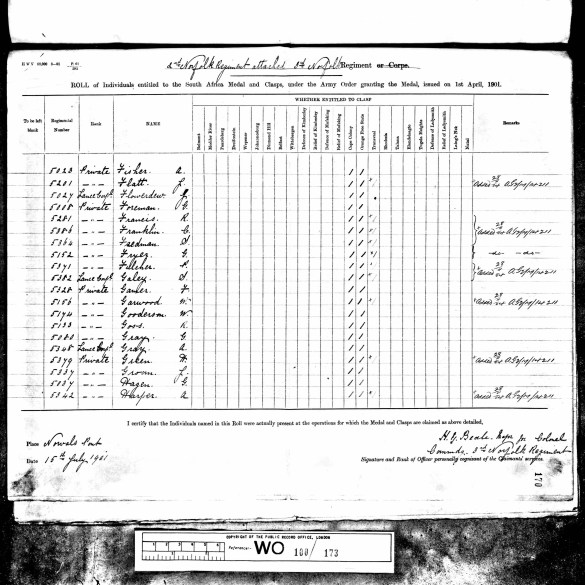 2nd Norfolk Regiment attached 3rd Norfolk Regiment or Corps.
ROLL of Individuals entitled to the South Africa Medal and Clasps, under the Army Order granting the Medal, issued on 1st April, 1901.
WHETHER ENTITLED TO CLASP
To be left blank Regimental Number Rank NAME Belmont Modder River Paardeberg Driefontein Wepener Johannesburg Diamond Hill Belfast Wittebergen Defence of Kimberley Relief of Kimberley Defence of Mafeking Relief of Mafeking Cape Colony Orange Free State Transvaal Rhodesia Talana Elandslaagte Tugela Heights Defence of Ladysmith Relief of Ladysmith Laing's Nek Natal Remarks
5023 Private Fisher A. / /
5201 -"- Flatt J. / /
5027 Lance Corpl Flowerdew / /
5108 Private Foreman G. / /
5281 -"- Francis R. / /
5386 -"- Franklin C. / /
5364 -"- Freedman / /
5152 -"- Fryer G. / / -do- -do-
5371 -"- Fulcher / /
5382 Lance Corpl Galey / /
5328 Private / /
5156 -"- Garwood W. / /
5174 -"- Gooderson W. / /
5133 -"- Goss R. / /
5080 -"- Gray G. / /
5348 Lance Corpl Gray A. / /
5379 Private Green H. / /
5337 -"- Groom / /
5037 -"- Hagen G. / /
5342 -"- Harper A / /
I certify that the Individuals named in this Roll were actually present at the operations for which the Medal and Clasps are claimed as above detailed,
Place Norvals Pont
Date 15th July 1901
Major for Colonel
3rd Norfolk Regiment
Signature and Rank of Officer personally cognizant of the Claimants' services.
170
COPYRIGHT OF THE PUBLIC RECORD OFFICE, LONDON
Reference:- WO 100/173